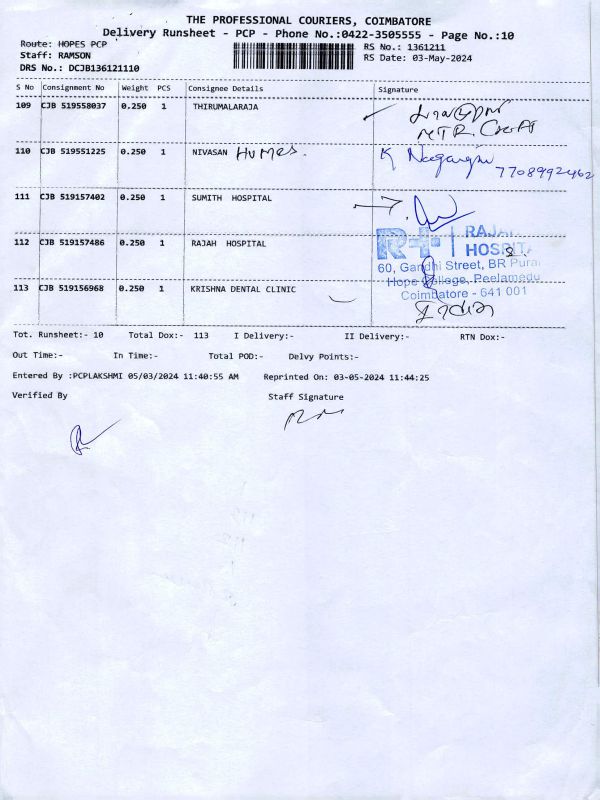 THE PROFESSIONAL COURIERS, COIMBATORE
Delivery Runsheet - PCP - Phone No.:0422-3505555 - Page No.:10
Route: HOPES PCP
RS No.: 1361211
Staff: RAMSON
RS Date: 03-May-2024
DRS No.: DCJB136121110
S No Consignment No Weight PCS Consignee Details Signature
109 CJB 519558037 0.250 1 THIRUMALARAJA
110 CJB 519551225 0.250 1 NIVASAN HOMES. K
7708992462
111 CJB 519157402 0.250 1 SUMITH HOSPITAL
R+ RAJAH
112 CJB 519157486 0.250 1 RAJAH HOSPITAL HOSPITA
60, Gandhi Street, BR Pura
Hope College, Peelamedu
113 CJB 519156968 0.250 1 KRISHNA DENTAL CLINIC Coimbatore - 641 001
Tot. Runsheet:- 10 Total Dox:- 113 I Delivery:- II Delivery:- RTN Dox:-
Out Time:- In Time:- Total POD:- Delvy Points:-
Entered By :PCPLAKSHMI 05/03/2024 11:40:55 AM Reprinted On: 03-05-2024 11:44:25
Verified By Staff Signature